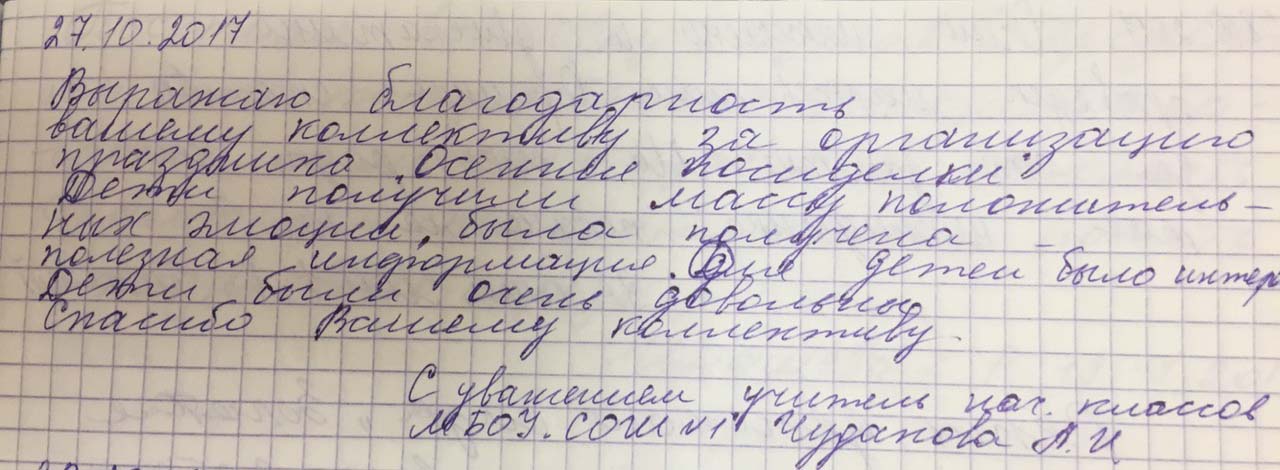 27.10.2017
Выражаю благодарность
вашему коллективу за организацию
праздника „Осенние посиделки".
Дети получили массу положитель-
ных эмоций, была получена
полезная информация. Для детей было интер
Дети были очень довольны.
Спасибо Вашему коллективу.
С уважением учитель нач. классов
МБОУ. СОШ №1 Чуданова Л.И